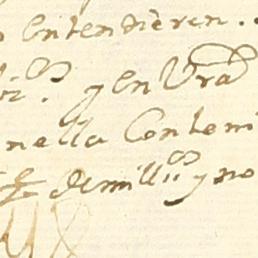 entendieren.
y en Vra
nella Conteni
de mill y no